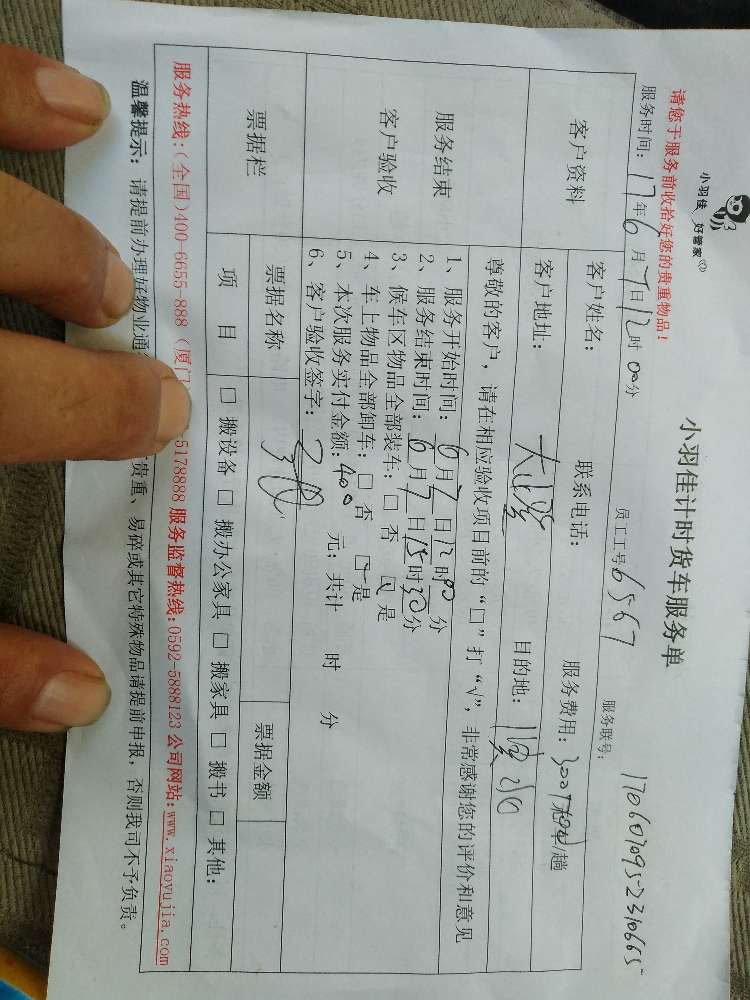 小羽佳 好管家
小羽佳计时货车服务单
请您于服务前收拾好您的贵重物品！
员工工号6567
服务联号：
1706070952310665
服务时间：17年6月7日12时00分
客户资料
客户姓名：
联系电话：
服务费用：300
/趟
客户地址：
目的地：
服务结束
客户验收
尊敬的客户，请在相应验收项目前的“□”打“√”，非常感谢您的评价和意见
1、服务开始时间：6月7日12时00分
2、服务结束时间：6月7日15时30分
3、候车区物品全部装车：□ 否 □ 是
4、车上物品全部卸车：□ 否 □ 是
5、本次服务实付金额：400 元；共计 时 分
6、客户验收签字：
票据栏
票据名称
票据金额
项 目
□ 搬设备 □ 搬办公家具 □ 搬家具 □ 搬书 □ 其他：
服务热线：（全国）400-6655-888（厦门
5178888 服务监督热线：0592-5888123 公司网站：www.xiaoyujia.com
温馨提示：请提前办理好物业通
贵重、易碎或其它特殊物品请提前申报，否则我司不予负责。